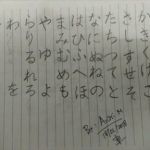 かきくけこ
さしすせそ
たちつてと
なにぬねの
はひふへほ
まみむめも
や ゆ よ
らりるれろ
わ を